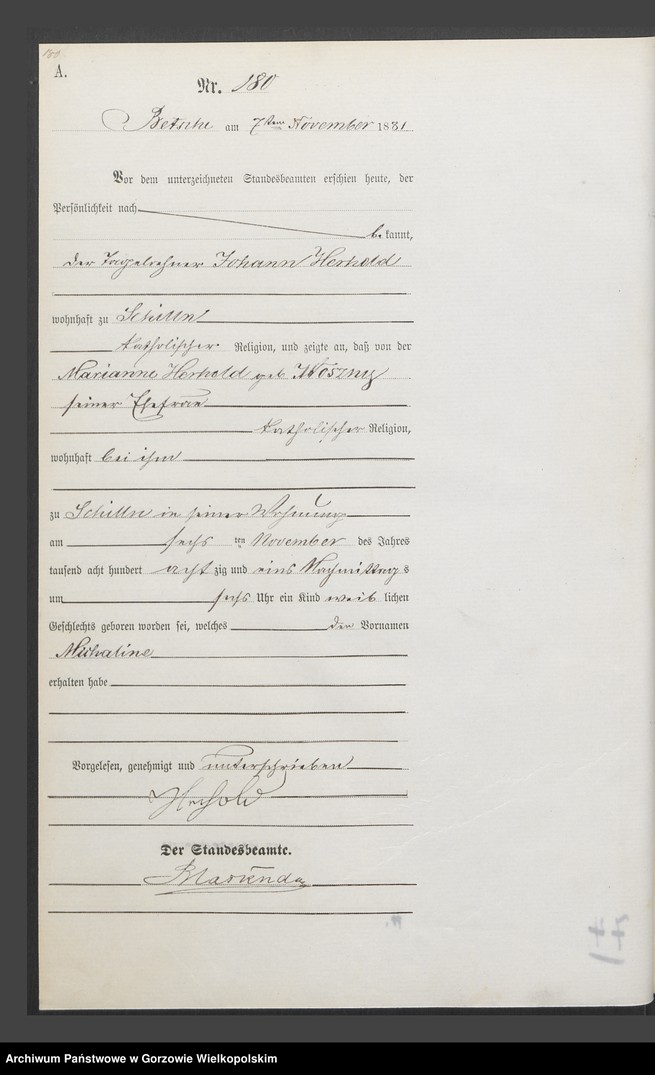 180.
A.
Nr. 180
Betsche am 7ten November 1881
Vor dem unterzeichneten Standesbeamten erschien heute, der
Persönlichkeit nach
bekannt,
der Tagelöhner Johann Herhold
wohnhaft zu Schilln
katholischer Religion, und zeigte an, daß von der
Marianne Herhold geb Woszny
seiner Ehefrau
katholischer Religion,
wohnhaft bei ihm
zu Schilln in seiner Wohnung
am sechs ten November des Jahres
tausend acht hundert acht zig und eins Nachmittags
um sechs Uhr ein Kind weib lichen
Geschlechts geboren worden sei, welches den Vornamen
Michaline
erhalten habe
Vorgelesen, genehmigt und unterschrieben
Herhold
Der Standesbeamte.
Archiwum Państwowe w Gorzowie Wielkopolskim